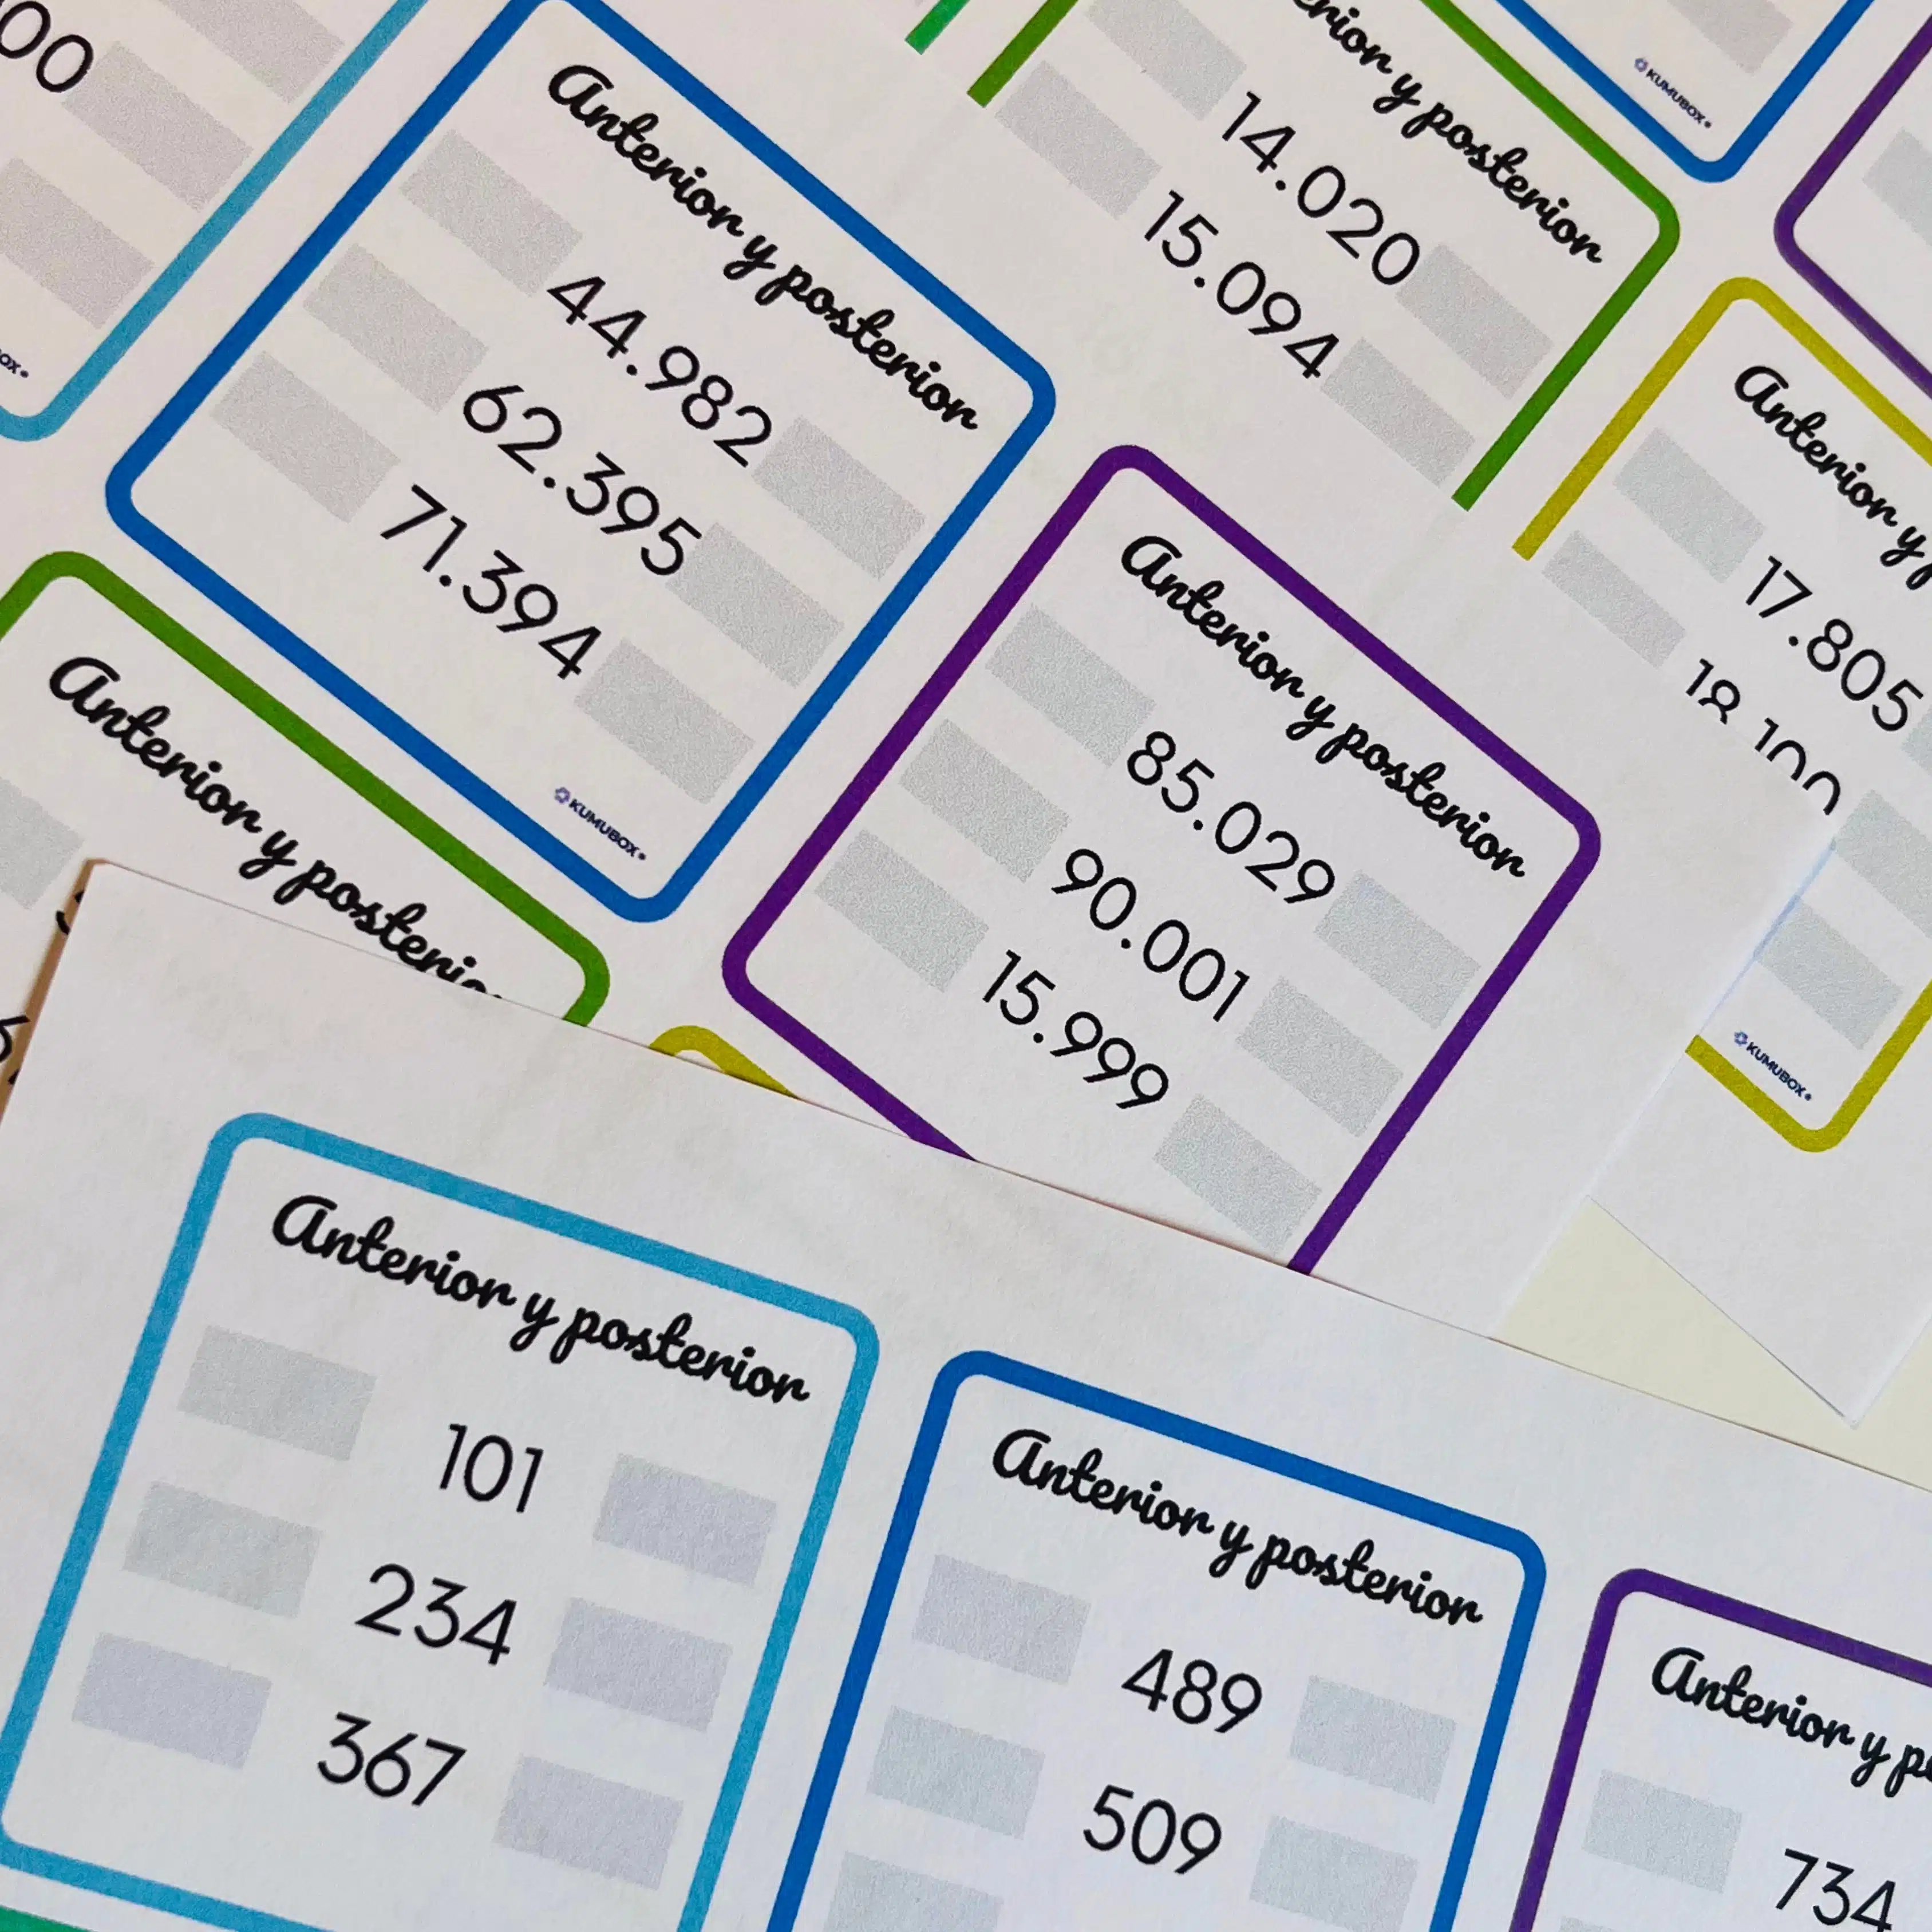 00
Anterior y posterior
44.982
62.395
71.394
KUMUBOX
y posterior
14.020
15.094
KUMUBOX
Anterior y
17.805
KUMUBOX
Anterior y posterior
85.029
90.001
15.999
Anterior y
Anterior y posterior
101
234
367
Anterior y posterior
489
509
Anterior y
734